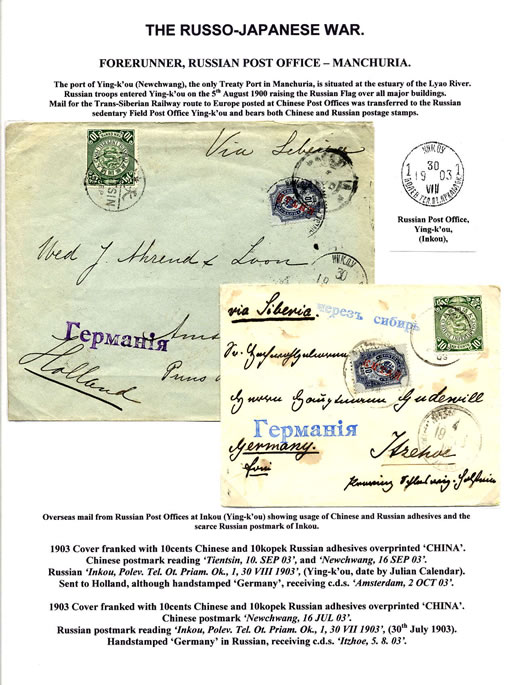 THE RUSSO-JAPANESE WAR.
FORERUNNER, RUSSIAN POST OFFICE – MANCHURIA.
The port of Ying-k'ou (Newchwang), the only Treaty Port in Manchuria, is situated at the estuary of the Lyao River.
Russian troops entered Ying-k'ou on the 5th August 1900 raising the Russian Flag over all major buildings.
Mail for the Trans-Siberian Railway route to Europe posted at Chinese Post Offices was transferred to the Russian
sedentary Field Post Office Ying-k'ou and bears both Chinese and Russian postage stamps.
Via Siberia
ИНКОУ
1 30 1
19 03
VIII
Russian Post Office,
Ying-k'ou,
(Inkou),
Wed J Ahrend & Zoon
Германія
Holland
via Siberia.
черезъ сибирь
10
10
Германія
Germany.
Itzehoe
Overseas mail from Russian Post Offices at Inkou (Ying-k'ou) showing usage of Chinese and Russian adhesives and the
scarce Russian postmark of Inkou.
1903 Cover franked with 10cents Chinese and 10kopek Russian adhesives overprinted 'CHINA'.
Chinese postmark reading 'Tientsin, 10. SEP 03', and 'Newchwang, 16 SEP 03'.
Russian 'Inkou, Polev. Tel. Ot. Priam. Ok., 1, 30 VIII 1903', (Ying-k'ou, date by Julian Calendar).
Sent to Holland, although handstamped 'Germany', receiving c.d.s. 'Amsterdam, 2 OCT 03'.
1903 Cover franked with 10cents Chinese and 10kopek Russian adhesives overprinted 'CHINA'.
Chinese postmark 'Newchwang, 16 JUL 03'.
Russian postmark reading 'Inkou, Polev. Tel. Ot. Priam. Ok., 1, 30 VII 1903', (30th July 1903).
Handstamped 'Germany' in Russian, receiving c.d.s. 'Itzhoe, 5. 8. 03'.